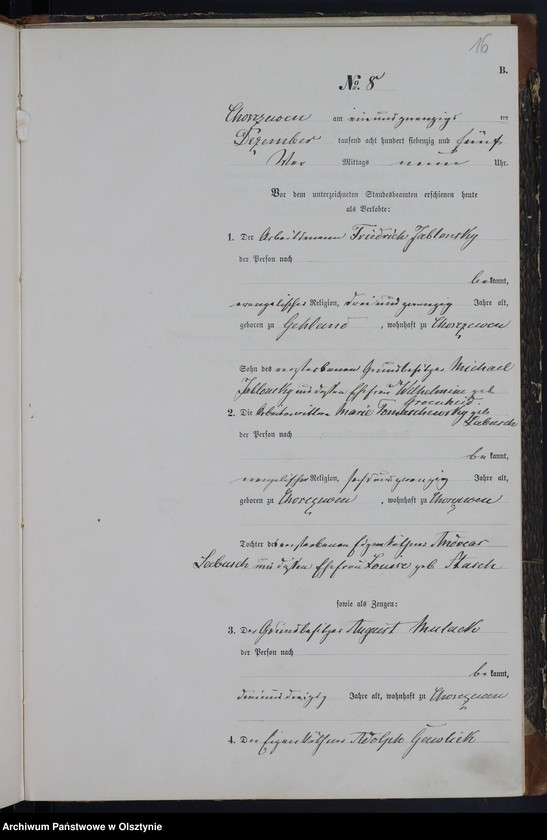 16
B.
No. 8
Chorzewen am ein und zwanzigsten
Dezember tausend acht hundert siebenzig und fünf
Vor Mittags neun Uhr.
Vor dem unterzeichneten Standesbeamten erschienen heute
als Verlobte:
1. Der Arbeitsmann Friedrich Jablonsky
der Person nach
bekannt,
evangelischer Religion, drei und zwanzig Jahre alt,
geboren zu Gehland, wohnhaft zu Chorzewen
Sohn des verstorbenen Grundbesitzer Michael
Jablonsky und dessen Ehefrau Wilhelmine geb
2. Die Arbeiterwittwe Marie geb
Labusch
der Person nach
bekannt,
evangelischer Religion, sechs und zwanzig Jahre alt,
geboren zu Chorzewen, wohnhaft zu Chorzewen
Tochter des verstorbenen Eigenkäthner Andreas
Labusch und dessen Ehefrau Louise geb Stasch
sowie als Zeugen:
3. Der Grundbesitzer August Mulack
der Person nach
bekannt,
drei und dreizig Jahre alt, wohnhaft zu Chorzewen
4. Der Eigenkäthner Adolph Gawlick
Archiwum Państwowe w Olsztynie